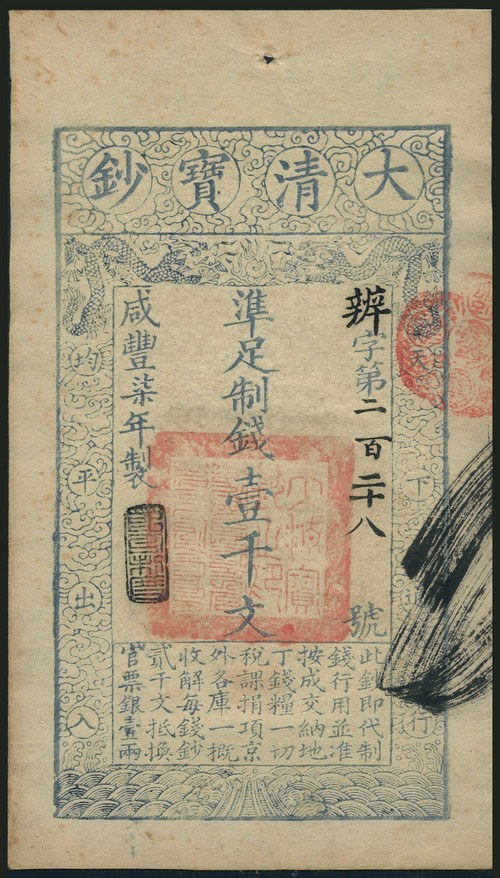 大清寶鈔
天下通行
辨字第二百二十八號
準足制錢壹千文
咸豐柒年製
均平出入
此鈔即代制
錢行用並准
按成交納地
丁錢糧一切
稅課捐項京
外各庫一概
收解每錢鈔
貳千文抵換
官票銀壹兩